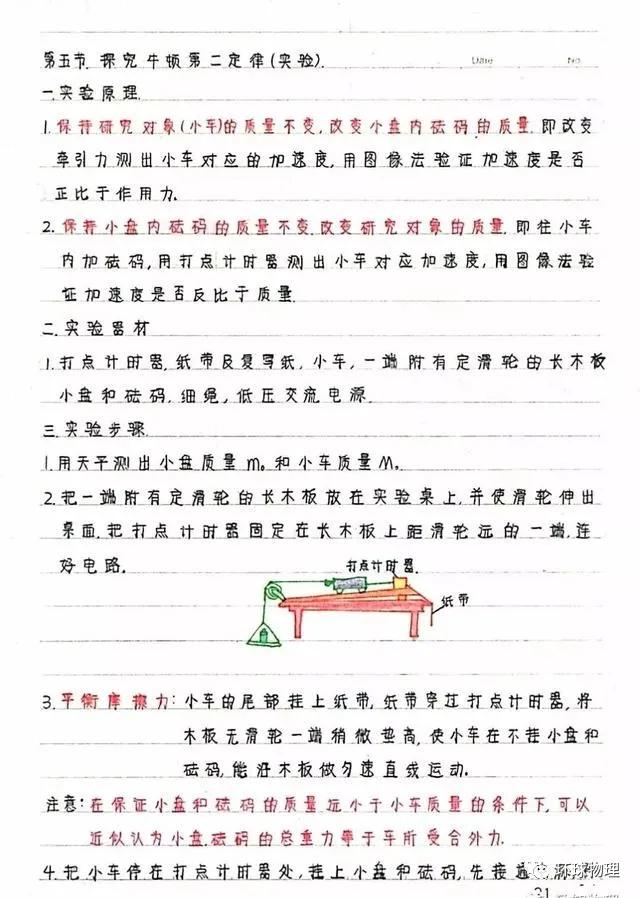 第五节. 探究牛顿第二定律(实验).
Date No.
一.实验原理.
1. 保持研究对象(小车)的质量不变,改变小盘内砝码的质量.即改变
牵引力测出小车对应的加速度,用图像法验证加速度是否
正比于作用力.
2. 保持小盘内砝码的质量不变.改变研究对象的质量.即往小车
内加砝码,用打点计时器测出小车对应加速度,用图像法验
证加速度是否反比于质量.
二.实验器材
1.打点计时器.纸带及复写纸,小车,一端附有定滑轮的长木板
小盘和砝码.细绳,低压交流电源.
三.实验步骤.
1.用天平测出小盘质量m₀和小车质量M₀
2.把一端附有定滑轮的长木板放在实验桌上,并使滑轮伸出
桌面.把打点计时器固定在长木板上距滑轮远的一端,连
好电路.
打点计时器.
纸带
3.平衡摩擦力:小车的尾部挂上纸带,纸带穿过打点计时器,将
木板无滑轮一端稍微垫高,使小车在不挂小盘和
砝码,能沿木板做匀速直线运动.
注意:在保证小盘和砝码的质量远小于小车质量的条件下,可以
近似认为小盘.砝码的总重力等于车所受合外力.
4.把小车停在打点计时器处,挂上小盘和砝码,先接通
环球物理
31